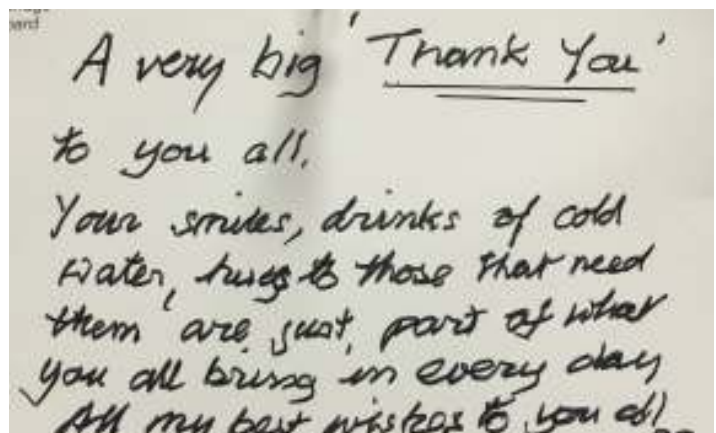 A very big 'Thank You'
to you all.
Your smiles, drinks of cold
water, hugs to those that need
them are just part of what
you all bring in every day
All my best wishes to you all